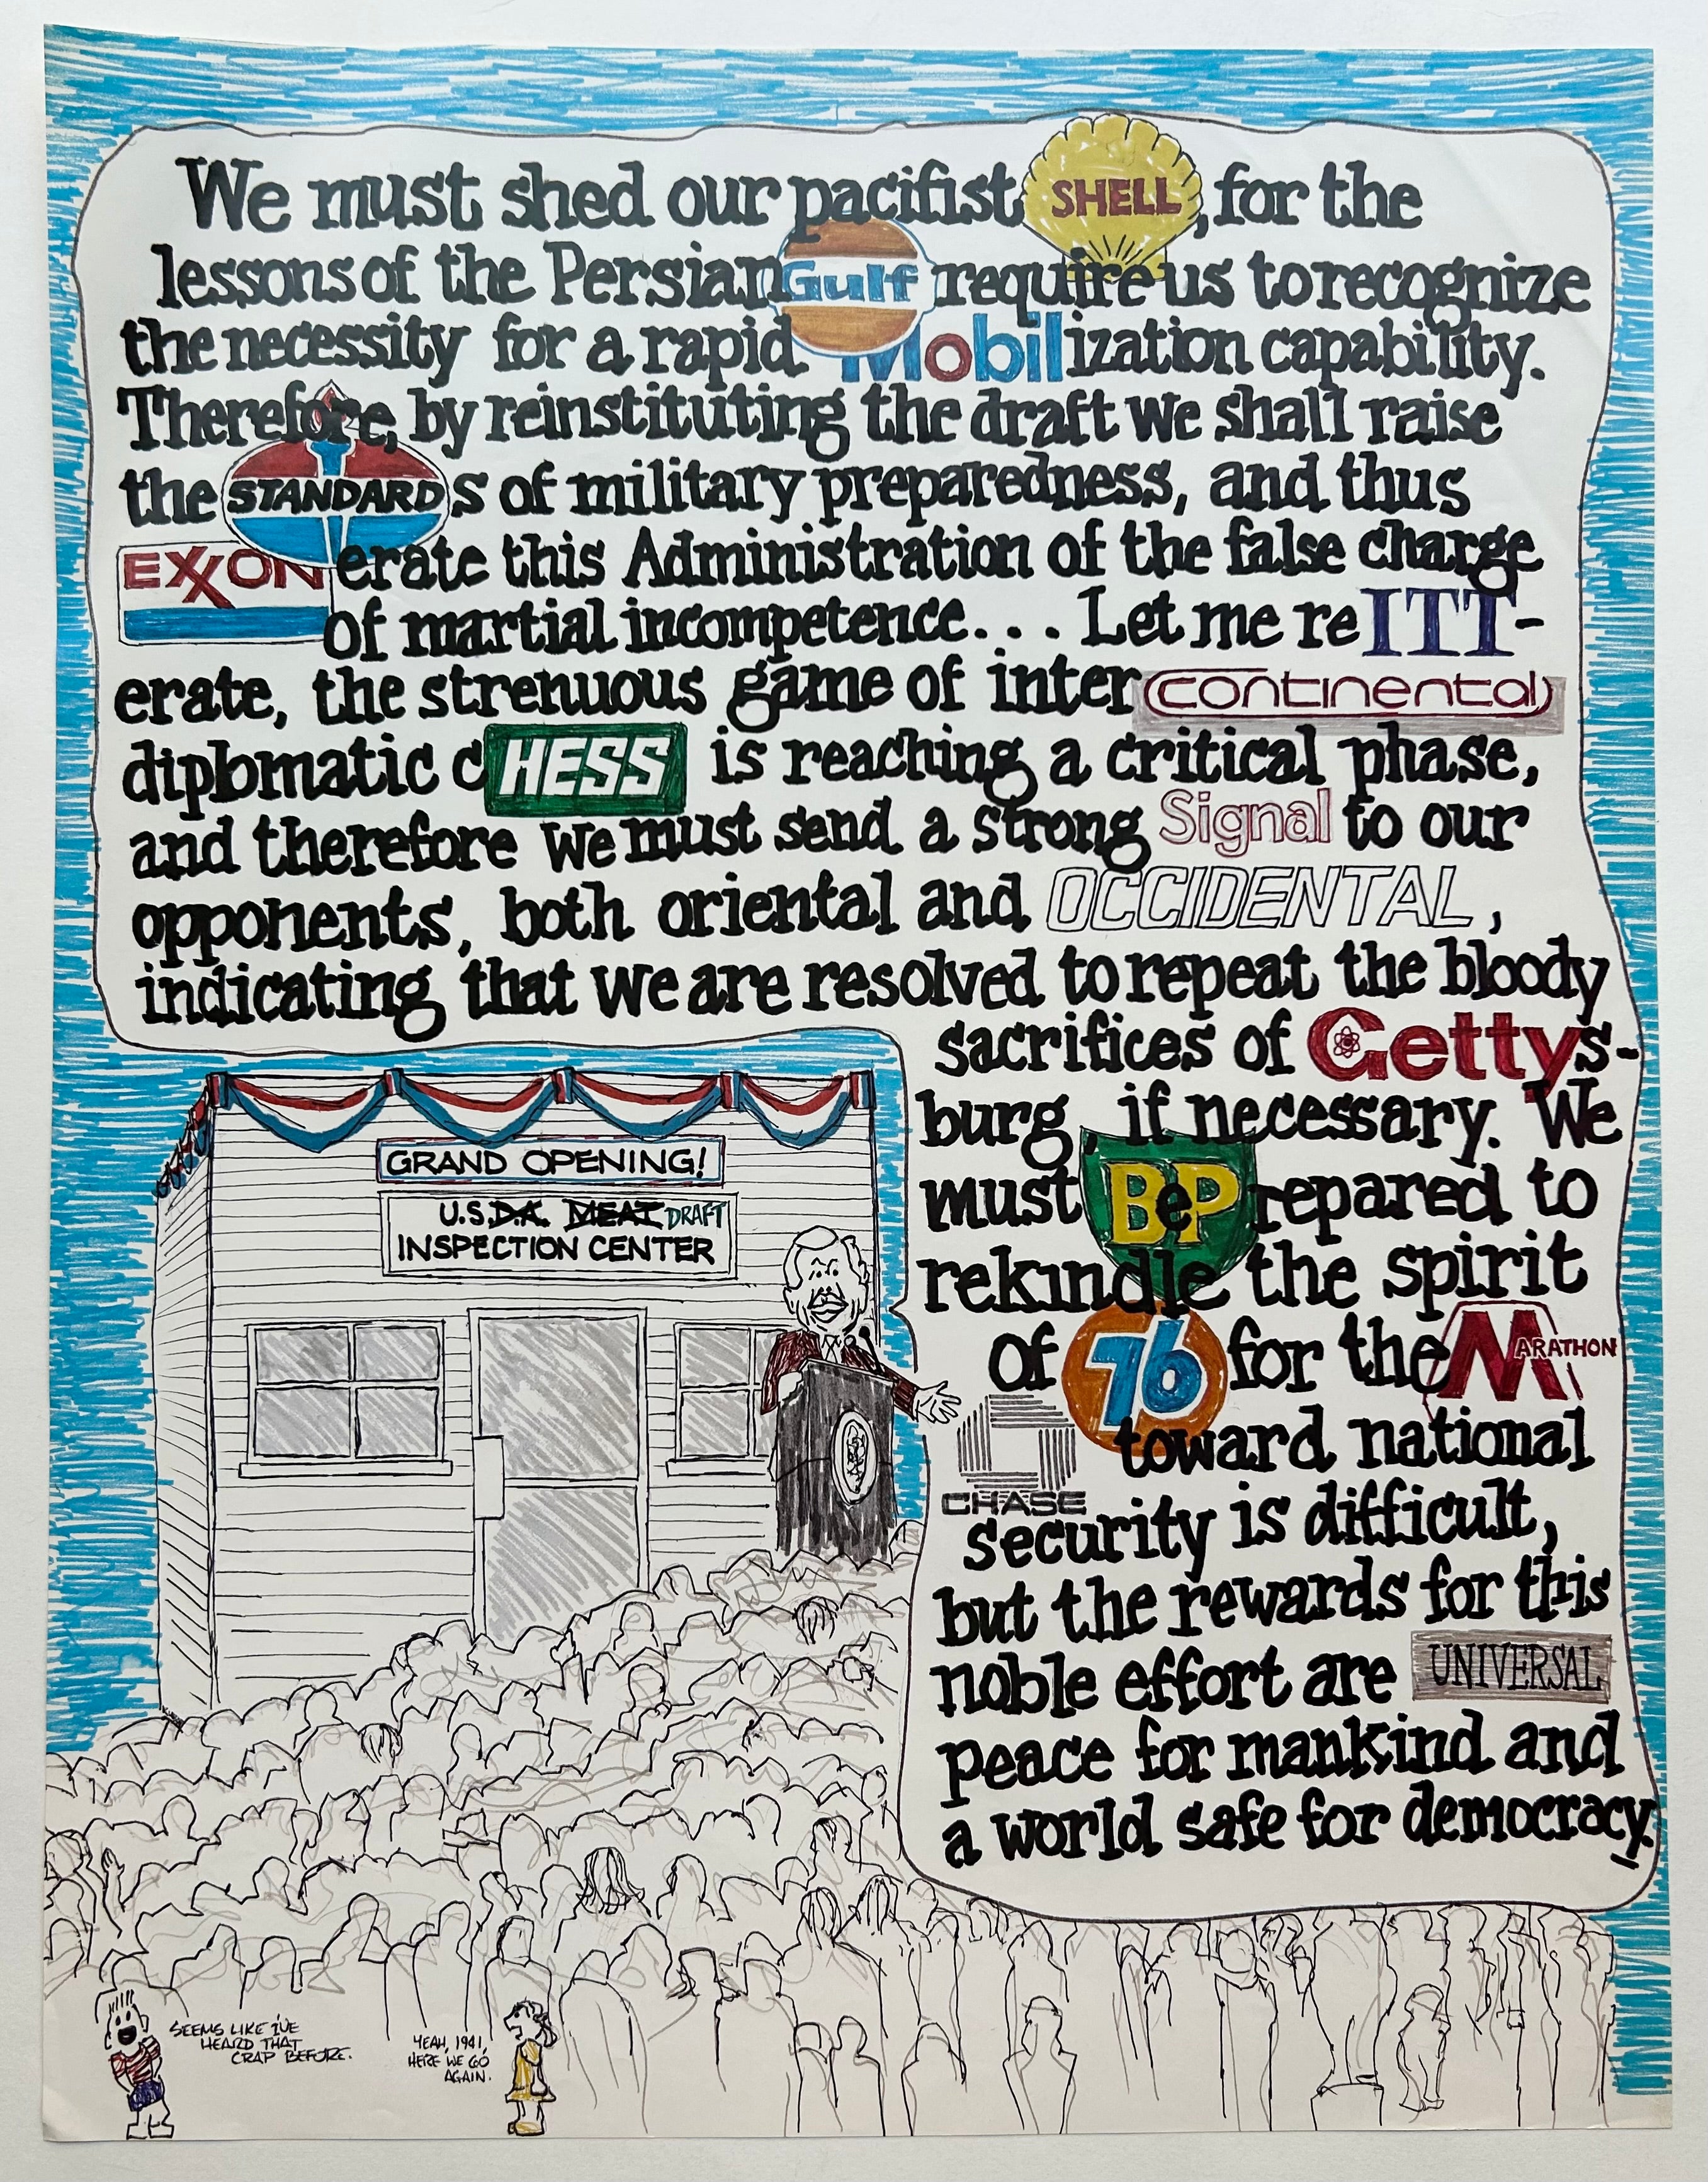 We must shed our pacifist SHELL, for the
lessons of the Persian Gulf require us to recognize
the necessity for a rapid Mobilization capability.
Therefore, by reinstituting the draft we shall raise
the STANDARDs of military preparedness, and thus
EXXONerate this Administration of the false charge
of martial incompetence... Let me reITT-
erate, the strenuous game of intercontinental
diplomatic cHESS is reaching a critical phase,
and therefore we must send a strong Signal to our
opponents, both oriental and OCCIDENTAL,
indicating that we are resolved to repeat the bloody
sacrifices of Gettys-
burg, if necessary. We
must BePrepared to
rekindle the spirit
of 76 for the MARATHON
CHASE toward national
security is difficult,
but the rewards for this
noble effort are UNIVERSAL
peace for mankind and
a world safe for democracy.
GRAND OPENING!
U.S.D.A. MEAT DRAFT
INSPECTION CENTER
SEEMS LIKE I'VE
HEARD THAT
CRAP BEFORE.
YEAH, 1941,
HERE WE GO
AGAIN.